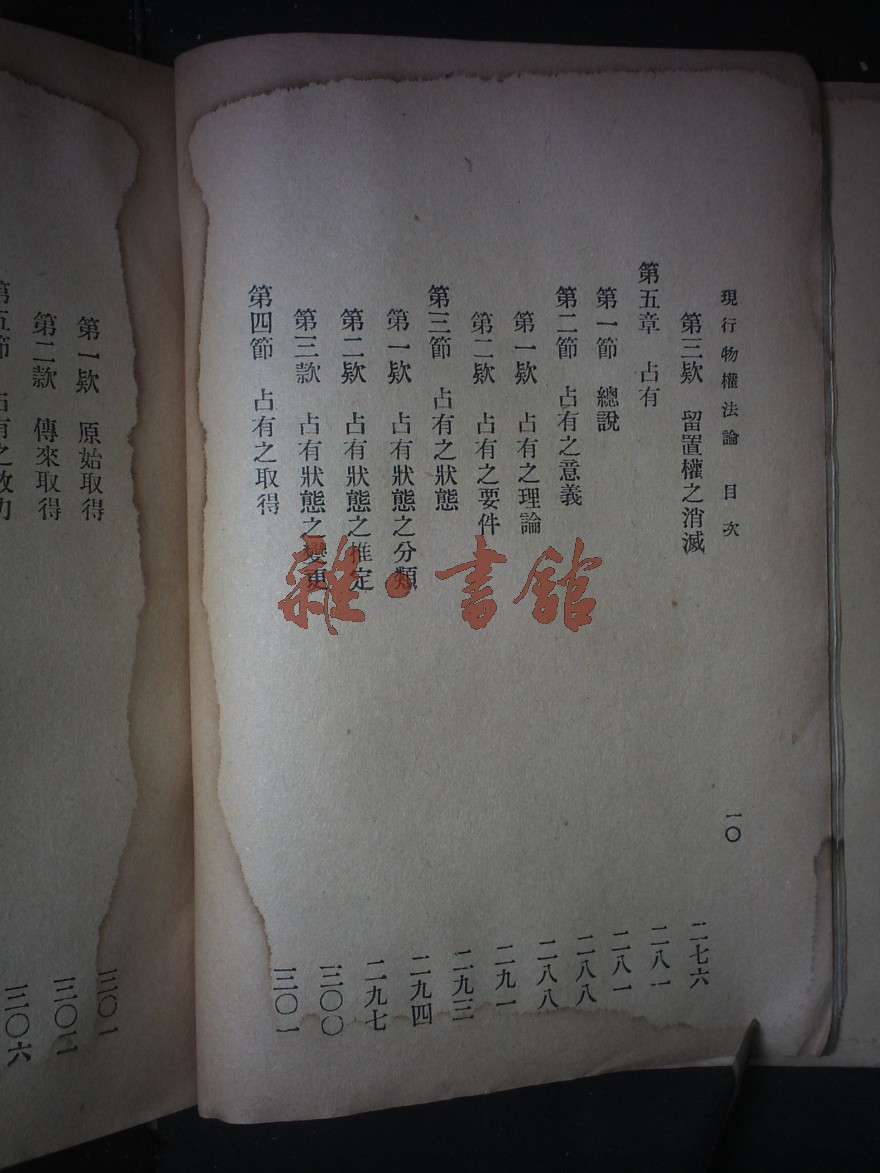 現行物權法論　目次　一〇
第三欵　留置權之消滅　二七六
第五章　占有　二八一
第一節　總說　二八一
第二節　占有之意義　二八八
第一欵　占有之理論　二八八
第二欵　占有之要件　二九一
第三節　占有之狀態　二九三
第一欵　占有狀態之分類　二九四
第二欵　占有狀態之推定　二九七
第三款　占有狀態之變更　三〇〇
第四節　占有之取得　三〇一
第一欵　原始取得　三〇一
第二款　傳來取得　三〇二
第五節　占有之效力　三〇六
雜·書館